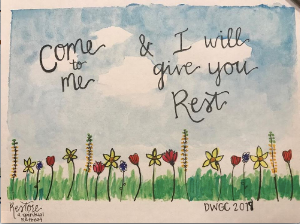 Come & I will
to give you
me Rest
Restore
a spiritual
retreat
DWGC 2017